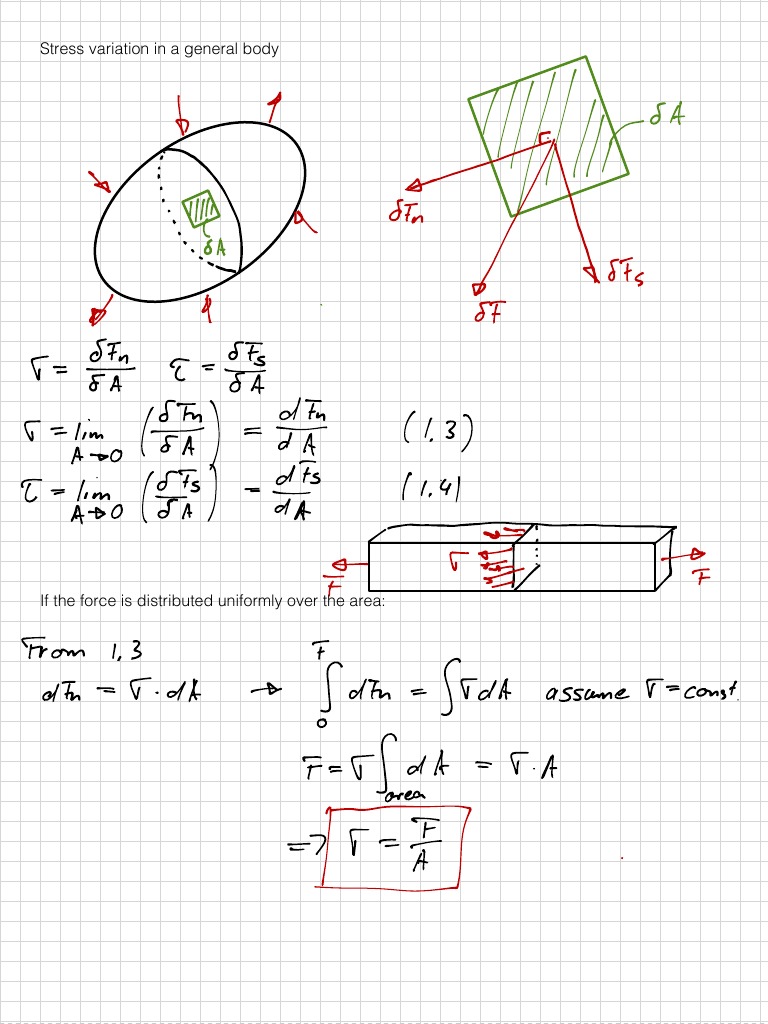 Stress variation in a general body
δA
δA
δFn
δFs
δF
σ = δFn / δA   τ = δFs / δA
σ = lim A→0 (δFn / δA) = dFn / dA   (1,3)
τ = lim A→0 (δFs / δA) = dFs / dA   (1,4)
F σ F
If the force is distributed uniformly over the area:
From 1,3
dFn = σ · dA → ∫₀^F dFn = ∫σdA assume σ = const.
F = σ ∫area dA = σ · A
=> σ = F / A